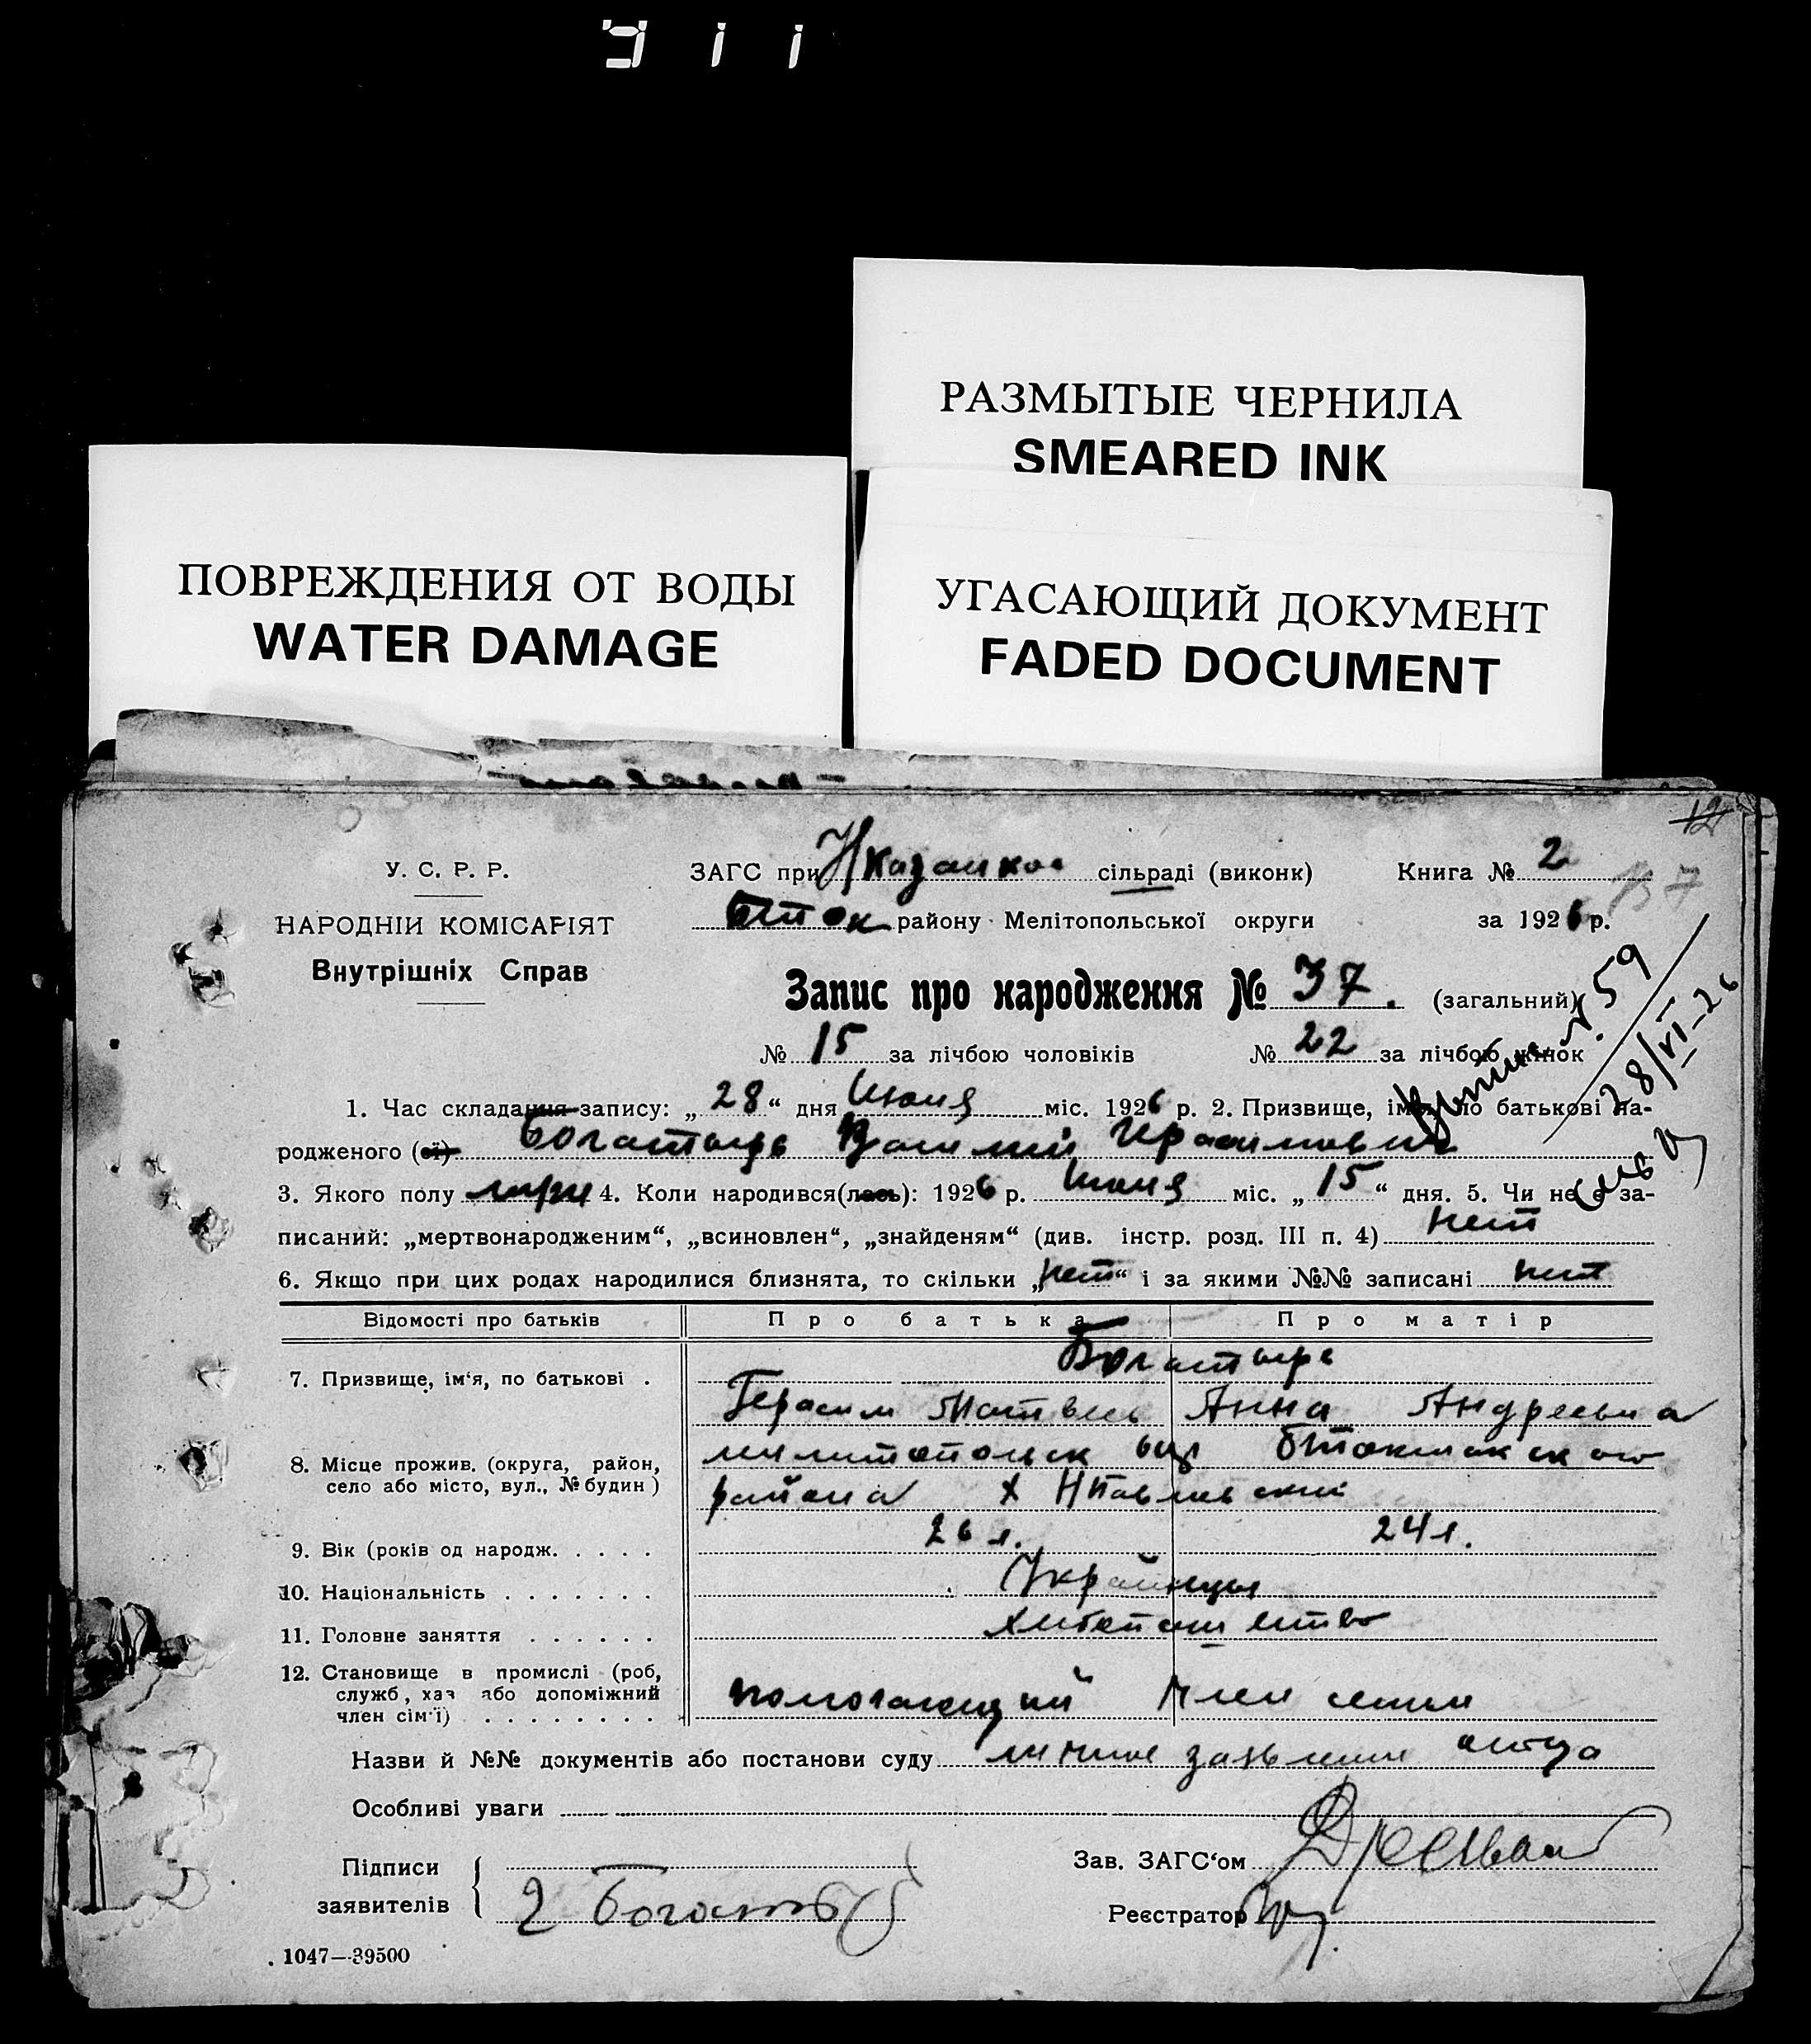 911
РАЗМЫТЫЕ ЧЕРНИЛА
SMEARED INK
ПОВРЕЖДЕНИЯ ОТ ВОДЫ
WATER DAMAGE
УГАСАЮЩИЙ ДОКУМЕНТ
FADED DOCUMENT
12
У. С. Р. Р.
ЗАГС при сільраді (виконк) Книга № 2
137
НАРОДНІЙ КОМІСАРІЯТ
БТок району Мелітопольської округи за 1926 р.
Внутрішніх Справ
Запис про народження № 37. (загальний)
№ 15 за лічбою чоловіків № 22 за лічбою жінок
№ 59
28/VI-26
1. Час складання запису: „28“ дня Июня міс. 1926 р. 2. Призвище, ім'я, по батькові на-
родженого (ої) Богатырь Василий Герасимович
3. Якого полу муж 4. Коли народився(лась): 1926 р. Июня міс. „15“ дня. 5. Чи не є за-
писаний: „мертвонародженим“, „всиновлен“, „знайденям“ (див. інстр. розд. III п. 4) нет
6. Якщо при цих родах народилися близнята, то скільки „нет“ і за якими №№ записані нет
Відомості про батьків Про батька Про матір
Богатырь
7. Призвище, ім‘я, по батькові .
Герасим Матвеев Анна Андреевна
8. Місце прожив. (округа, район, село або місто, вул., № будин)
мелитопольск окр Бтокмакского
района х НПавловский
9. Вік (років од народж. . . . . 26 л. 24 л.
10. Національність . . . . . . . Украинцы
11. Головне заняття . . . . . . хлебопашество
12. Становище в промислі (роб,
служб, хаз або допоміжний
член сім'ї) . . . . . . . . помогающий член семьи
Назви й №№ документів або постанови суду личное заявление отца
Особливі уваги
Підписи
заявителів
Зав. ЗАГС‘ом
Богатыр
Реєстратор
1047—39500